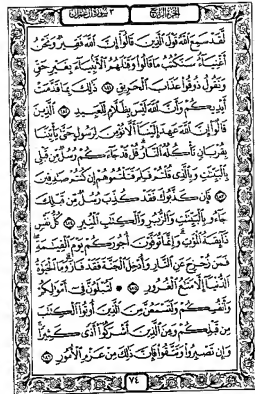 الجزء الرابع ٣ سورة آل عمران
لَّقَدْ سَمِعَ اللَّهُ قَوْلَ الَّذِينَ قَالُوا إِنَّ اللَّهَ فَقِيرٌ وَنَحْنُ
أَغْنِيَاءُ سَنَكْتُبُ مَا قَالُوا وَقَتْلَهُمُ الْأَنبِيَاءَ بِغَيْرِ حَقٍّ
وَنَقُولُ ذُوقُوا عَذَابَ الْحَرِيقِ ١٨١ ذَٰلِكَ بِمَا قَدَّمَتْ
أَيْدِيكُمْ وَأَنَّ اللَّهَ لَيْسَ بِظَلَّامٍ لِّلْعَبِيدِ ١٨٢ الَّذِينَ
قَالُوا إِنَّ اللَّهَ عَهِدَ إِلَيْنَا أَلَّا نُؤْمِنَ لِرَسُولٍ حَتَّىٰ يَأْتِيَنَا
بِقُرْبَانٍ تَأْكُلُهُ النَّارُ قُلْ قَدْ جَاءَكُمْ رُسُلٌ مِّن قَبْلِي
بِالْبَيِّنَٰتِ وَبِالَّذِي قُلْتُمْ فَلِمَ قَتَلْتُمُوهُمْ إِن كُنتُمْ صَٰدِقِينَ
١٨٣ فَإِن كَذَّبُوكَ فَقَدْ كُذِّبَ رُسُلٌ مِّن قَبْلِكَ
جَاءُو بِالْبَيِّنَٰتِ وَالزُّبُرِ وَالْكِتَٰبِ الْمُنِيرِ ١٨٤ كُلُّ نَفْسٍ
ذَائِقَةُ الْمَوْتِ وَإِنَّمَا تُوَفَّوْنَ أُجُورَكُمْ يَوْمَ الْقِيَٰمَةِ
فَمَن زُحْزِحَ عَنِ النَّارِ وَأُدْخِلَ الْجَنَّةَ فَقَدْ فَازَ وَمَا الْحَيَوٰةُ
الدُّنْيَا إِلَّا مَتَٰعُ الْغُرُورِ ١٨٥ لَتُبْلَوُنَّ فِي أَمْوَٰلِكُمْ
وَأَنفُسِكُمْ وَلَتَسْمَعُنَّ مِنَ الَّذِينَ أُوتُوا الْكِتَٰبَ
مِن قَبْلِكُمْ وَمِنَ الَّذِينَ أَشْرَكُوا أَذًى كَثِيرًا
وَإِن تَصْبِرُوا وَتَتَّقُوا فَإِنَّ ذَٰلِكَ مِنْ عَزْمِ الْأُمُورِ ١٨٦
٧٤